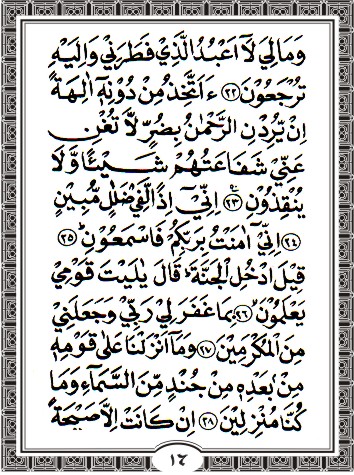 وَمَا لِيَ لَآ اَعْبُدُ الَّذِيْ فَطَرَنِيْ وَاِلَيْهِ
تُرْجَعُوْنَ ﴿٢٢﴾ ءَاَتَّخِذُ مِنْ دُوْنِهٖٓ اٰلِهَةً
اِنْ يُّرِدْنِ الرَّحْمٰنُ بِضُرٍّ لَّا تُغْنِ
عَنِّيْ شَفَاعَتُهُمْ شَيْـًٔا وَّلَا
يُنْقِذُوْنِ ﴿٢٣﴾ اِنِّيْٓ اِذًا لَّفِيْ ضَلٰلٍ مُّبِيْنٍ
﴿٢٤﴾ اِنِّيْٓ اٰمَنْتُ بِرَبِّكُمْ فَاسْمَعُوْنِ ﴿٢٥﴾
قِيْلَ ادْخُلِ الْجَنَّةَ ۗ قَالَ يٰلَيْتَ قَوْمِيْ
يَعْلَمُوْنَ ﴿٢٦﴾ بِمَا غَفَرَ لِيْ رَبِّيْ وَجَعَلَنِيْ
مِنَ الْمُكْرَمِيْنَ ﴿٢٧﴾ وَمَآ اَنْزَلْنَا عَلٰى قَوْمِهٖ
مِنْۢ بَعْدِهٖ مِنْ جُنْدٍ مِّنَ السَّمَآءِ وَمَا
كُنَّا مُنْزِلِيْنَ ﴿٢٨﴾ اِنْ كَانَتْ اِلَّا صَيْحَةً
١٦